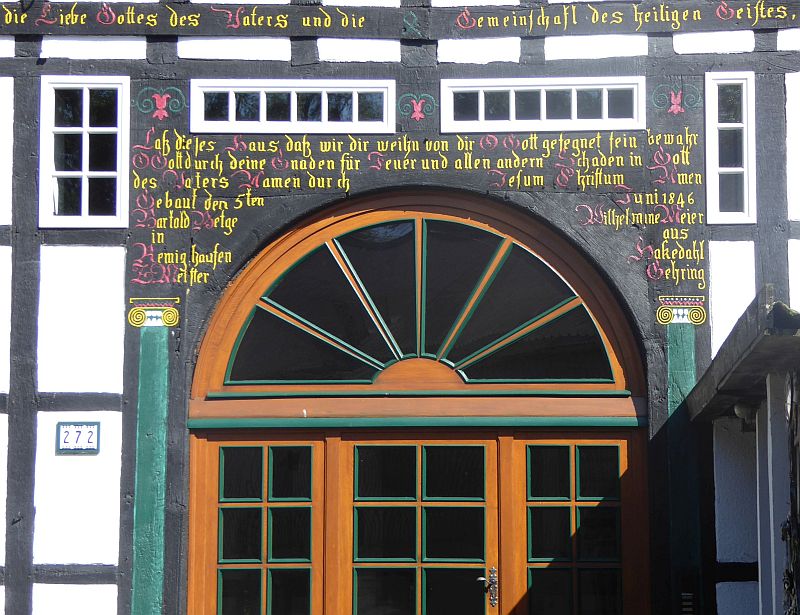 die Liebe Gottes des Vaters und die & Gemeinschaft des heiligen Geistes,
Laß dieses Haus, daß wir dir weihn von dir O Gott gesegnet sein bewahr
O Gott durch deine Gnaden für Feuer und allen andern Schaden in Gott
des Vaters Namen durch Jesum Christum Amen
Gebaut den 5ten Juni 1846
Bartold Welge Wilhelmine Meier
in aus
Remighausen Hakedahl
Z Meister Gehring
272